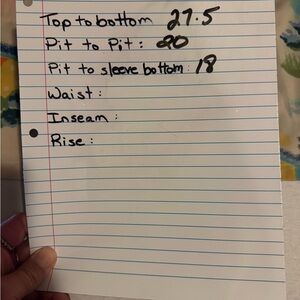 Top to bottom 27.5
Pit to Pit: 20
Pit to sleeve bottom: 18
Waist:
Inseam:
Rise: